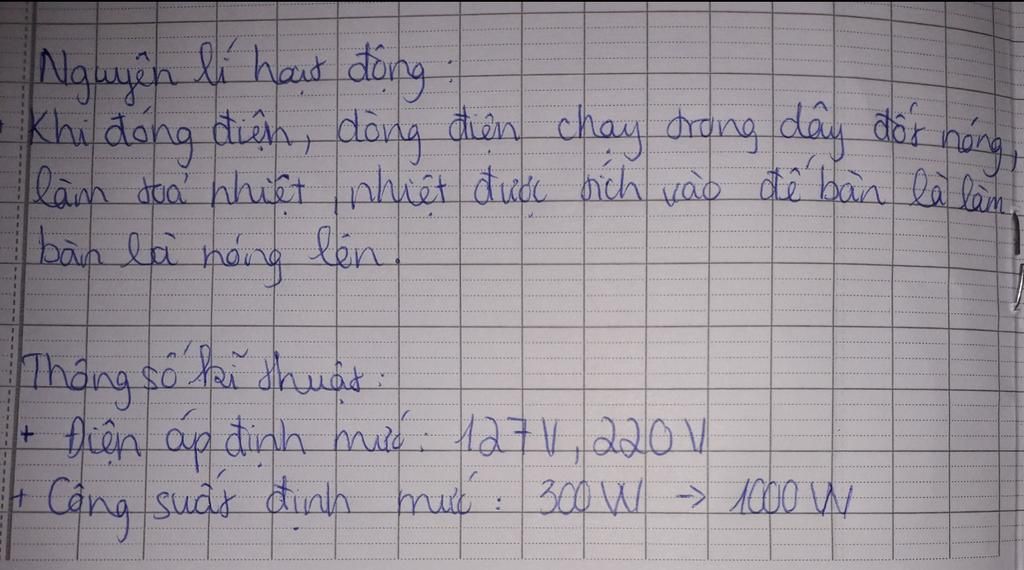 Nguyên lí hoạt động:
Khi đóng điện, dòng điện chạy trong dây đốt nóng,
làm toả nhiệt, nhiệt được tích vào đế bàn là làm
bàn là nóng lên.
Thông số kĩ thuật:
+ Điện áp định mức: 127V, 220V
+ Công suất định mức: 300W → 1000W